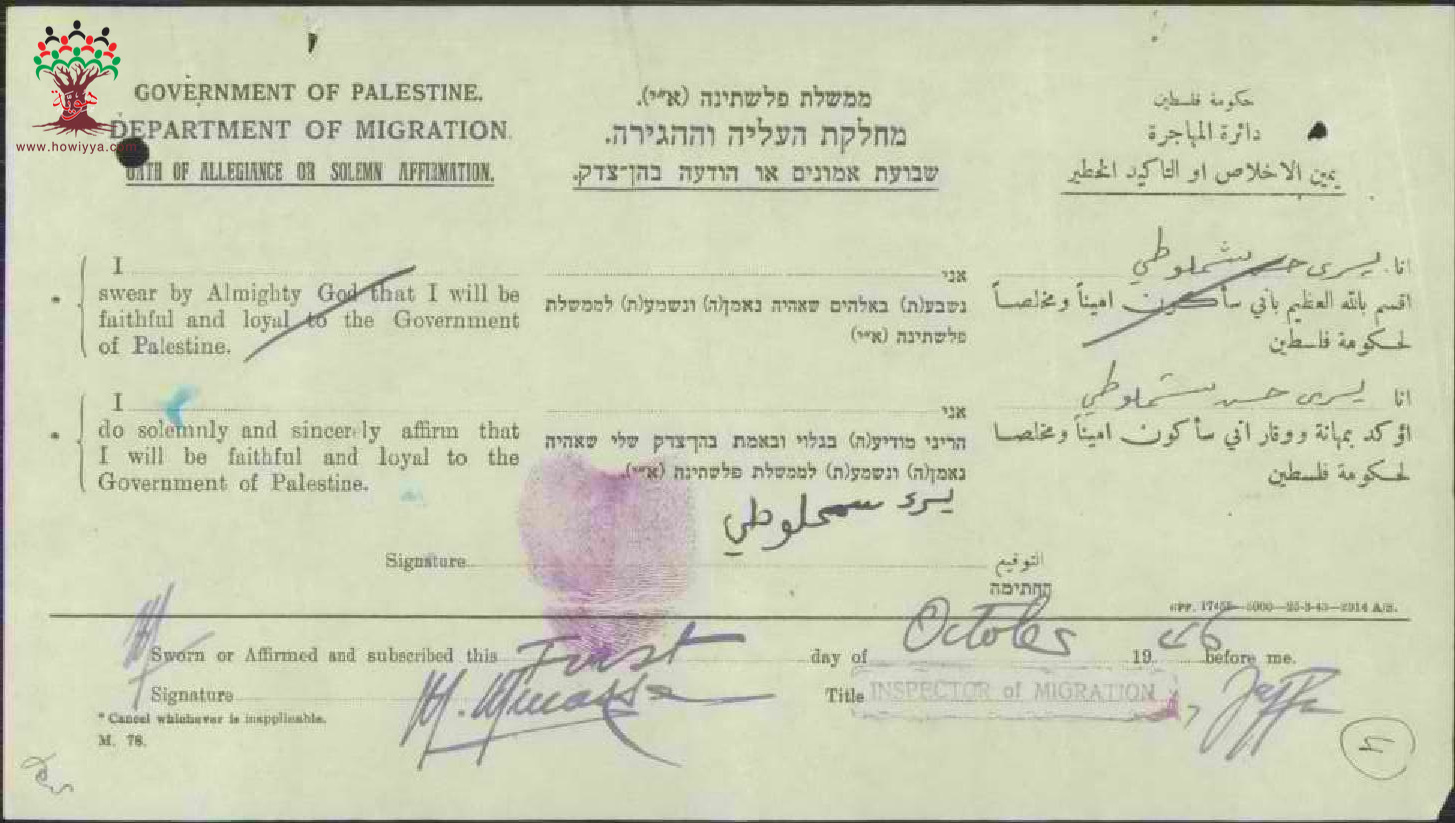 هوية
www.howiyya.com
GOVERNMENT OF PALESTINE.
DEPARTMENT OF MIGRATION.
OATH OF ALLEGIANCE OR SOLEMN AFFIRMATION.
ממשלת פלשתינה (א״י).
מחלקת העליה וההגירה.
שבועת אמונים או הודעה בהן־צדק.
حكومة فلسطين
دائرة المهاجرة
يمين الاخلاص او التاكيد الخطير
* I
swear by Almighty God that I will be
faithful and loyal to the Government
of Palestine.
אני
נשבע(ת) באלהים שאהיה נאמן(ה) ונשמע(ת) לממשלת
פלשתינה (א״י)
انا يسرى حسن سملوطي
اقسم بالله العظيم بأني سأكون اميناً ومخلصاً
لحكومة فلسطين
* I
do solemnly and sincerely affirm that
I will be faithful and loyal to the
Government of Palestine.
אני
הריני מודיע(ה) בגלוי ובאמת בהן־צדק שלי שאהיה
נאמן(ה) ונשמע(ת) לממשלת פלשתינה (א״י).
انا يسرى حسن سملوطي
اؤكد بمهانة ووقار اني سأكون اميناً ومخلصا
لحكومة فلسطين
Signature
التوقيع
החתימה
GPP. 17455—5000—25-3-43—2914 A/S.
Sworn or Affirmed and subscribed this First day of October 1946 before me.
Signature
Title INSPECTOR of MIGRATION, Jaffa
* Cancel whichever is inapplicable.
M. 78.